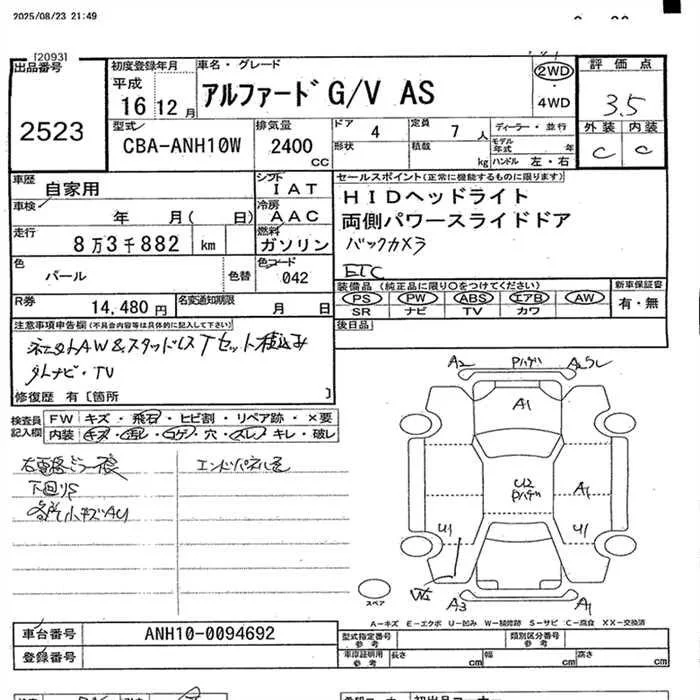 2025/08/23 21:49
[2093]
出品番号
2523
初度登録年月
平成
16 12 月
車名・グレード
アルファード G/V AS
2WD
4WD
評価点
3.5
外装 内装
C C
型式
CBA-ANH10W
排気量
2400
CC
ドア 4
定員 7 人
ディーラー・並行
形状
積載 kg
モデル年式 年
ハンドル 左・右
車歴
自家用
シフト
IAT
車検
年 月( 日)
冷房
AAC
走行
8万3千882 km
燃料
ガソリン
色
パール
色替
色コード
042
R券
14,480円
名変通知期限
月 日
セールスポイント(正常に機能するものに限ります)
HIDヘッドライト
両側パワースライドドア
バックカメラ
ETC
装備品 (純正品に限り○をつけてください)
PS PW ABS エアB AW
SR ナビ TV カワ
新車保証書
有・無
後日品
注意事項申告欄(不具合内容等は具体的に記入して下さい)
ダムナビ・TV
修復歴 有〔箇所 〕
検査員記入欄
FW キズ・飛石・ヒビ割・リペア跡・×要
内装 キズ・汚レ・コゲ・穴・スレ・キレ・破レ
下回りS
各所小キズAU
A2 Pハゲ A2
A1
U2
Pハゲ
A1
U1 U1
W2
A3 A1
スペア
A-キズ E-エクボ U-凹み W-補修跡 S-サビ C-腐食 XX-交換済
車台番号
ANH10-0094692
登録番号
型式指定番号
参考
類別区分番号
参考
車庫証明用
参考
長さ cm 幅 cm 高さ cm